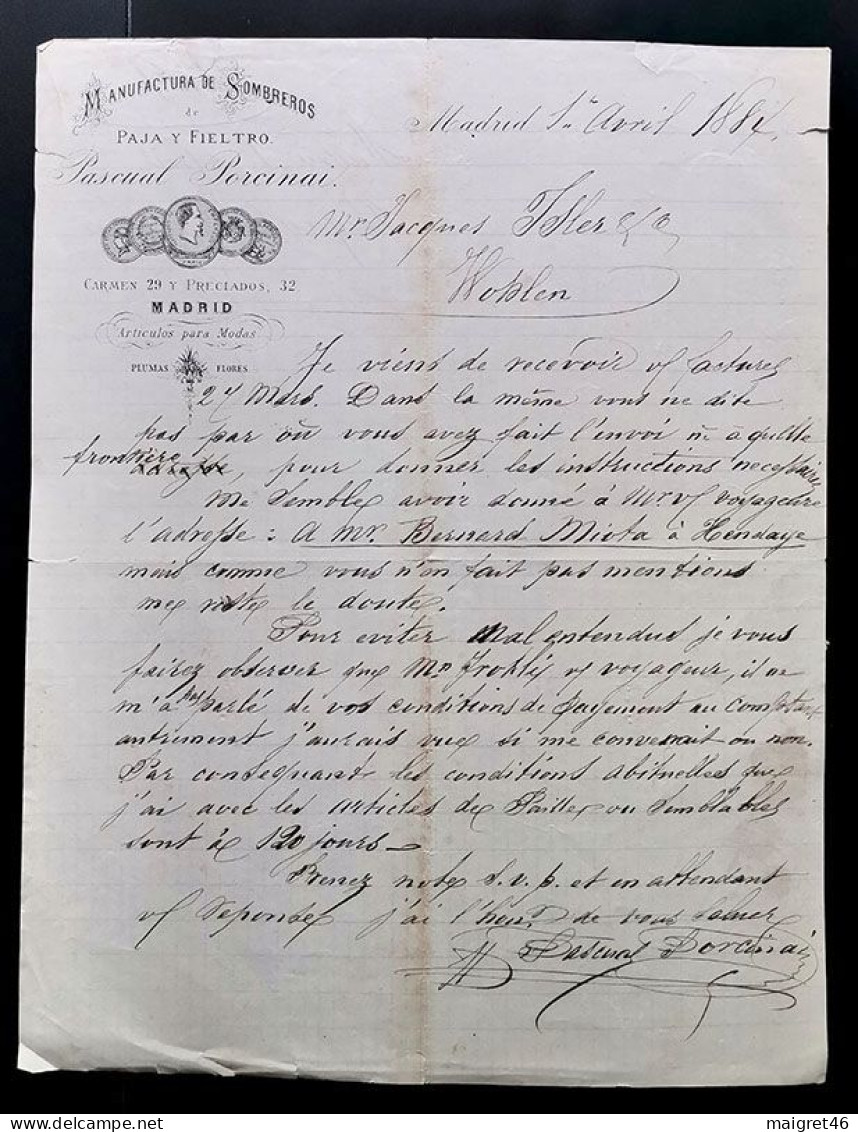 MANUFACTURA DE SOMBREROS
de
PAJA Y FIELTRO.
Pascual Porcinai.
CARMEN 29 Y PRECIADOS, 32
MADRID
Artículos para Modas
PLUMAS FLORES
Madrid 1er Avril 1884.
Mr. Jacques Isler & Co
Wohlen
Je viens de recevoir vf facture
27 Mars. Dans la même vous ne dite
pas par où vous avez fait l'envoi ni à quelle
frontière, pour donner les instructions necessaires
Me semble avoir donné à Mr. vf voyageure
l'adresse : A Mr. Bernard Miota à Hendaye
mais comme vous n'en fait pas mentions
me reste le doute.
Pour eviter mal entendus je vous
faire observer que Mr Frohli vf voyageur, il ne
m'a pas parlé de vos conditions de payement au comptant
autrement j'aurais vue si me convenait ou non.
Par consequant les conditions abituelles que
j'ai avec les articles de Paille ou semblables
sont à 120 jours —
Prenez note s. v. p. et en attendant
vf reponse j'ai l'honr. de vous saluer
Pascual Porcinai
maigret46